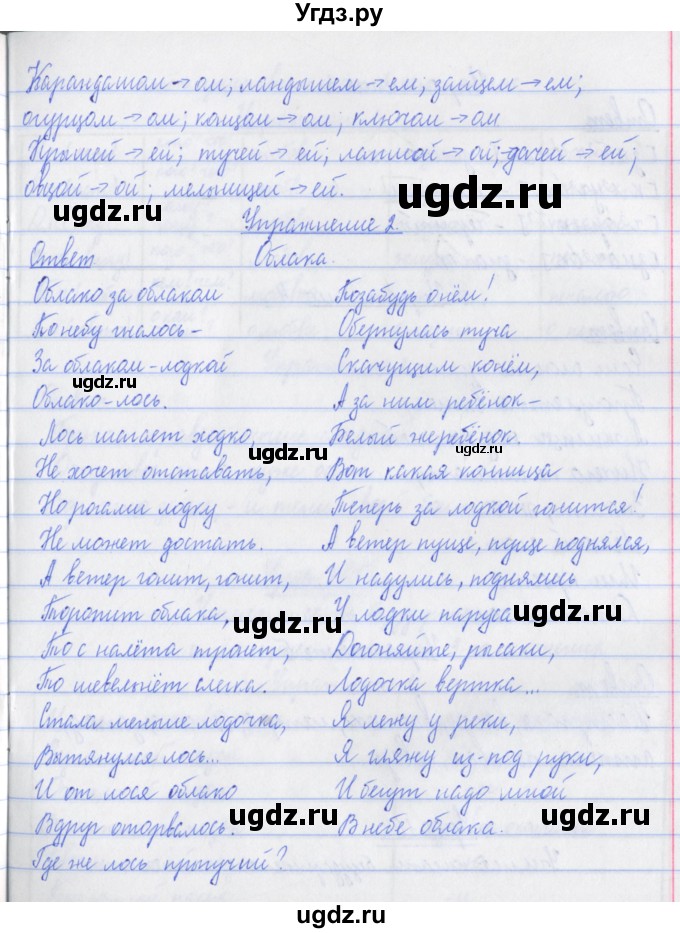 Угдз.ру
Карандашом → ом; ландышем → ем; зайцем → ем;
огурцом → ом; концом → ом; ключом → ом
Крышей → ей; тучей → ей; лапшой → ой; дачей → ей;
овцой → ой; мельницей → ей.
Упражнение 2.
Ответ
Облака.
Облако за облаком
По небу гналось –
За облаком-лодкой
Облако-лось.
Лось шагает ходко,
Не хочет отставать,
Но рогами лодку
Не может достать.
А ветер гонит, гонит,
Торопит облака,
То с налёта тронет,
То шевельнёт слегка.
Стала меньше лодочка,
Вытянулся лось...
И от лося облако
Вдруг оторвалось.
Где же лось прыгучий?
Позабудь о нём!
Обернулась туча
Скачущим конём,
А за ним ребёнок –
Белый жеребёнок.
Вот какая конница
Теперь за лодкой гонится!
А ветер пуще, пуще поднялся,
И надулись, поднялись
У лодки паруса
Догоняйте, рысаки,
Лодочка вертка...
Я лежу у реки,
Я гляжу из-под руки,
И бегут надо мной
В небе облака.
ugdz.ru
ugdz.ru
ugdz.ru
ugdz.ru
ugdz.ru
ugdz.ru
ugdz.ru
ugdz.ru
ugdz.ru
ugdz.ru
ugdz.ru
ugdz.ru
ugdz.ru